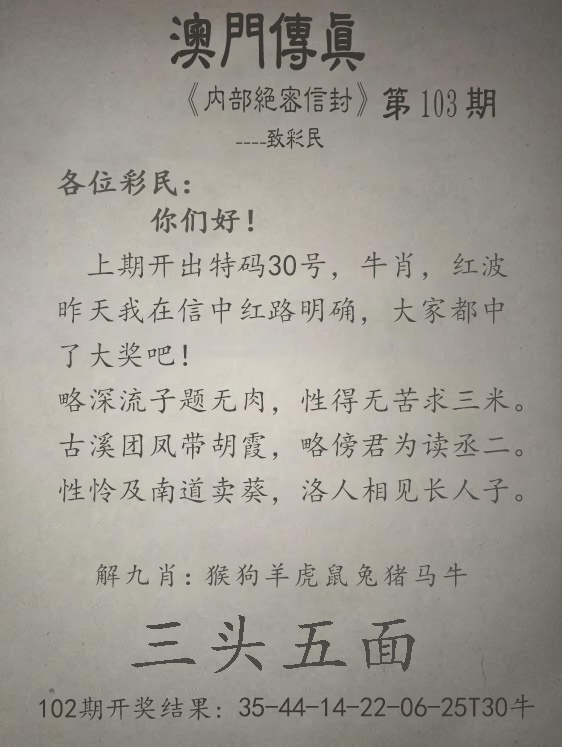 澳門傳眞
《内部絕密信封》第103期
----致彩民
各位彩民：
你们好！
上期开出特码30号，牛肖，红波
昨天我在信中红路明确，大家都中
了大奖吧！
略深流子题无肉，性得无苦求三米。
古溪团凤带胡霞，略傍君为读丞二。
性怜及南道卖葵，洛人相见长人子。
解九肖：猴狗羊虎鼠兔猪马牛
三头五面
102期开奖结果：35-44-14-22-06-25T30牛